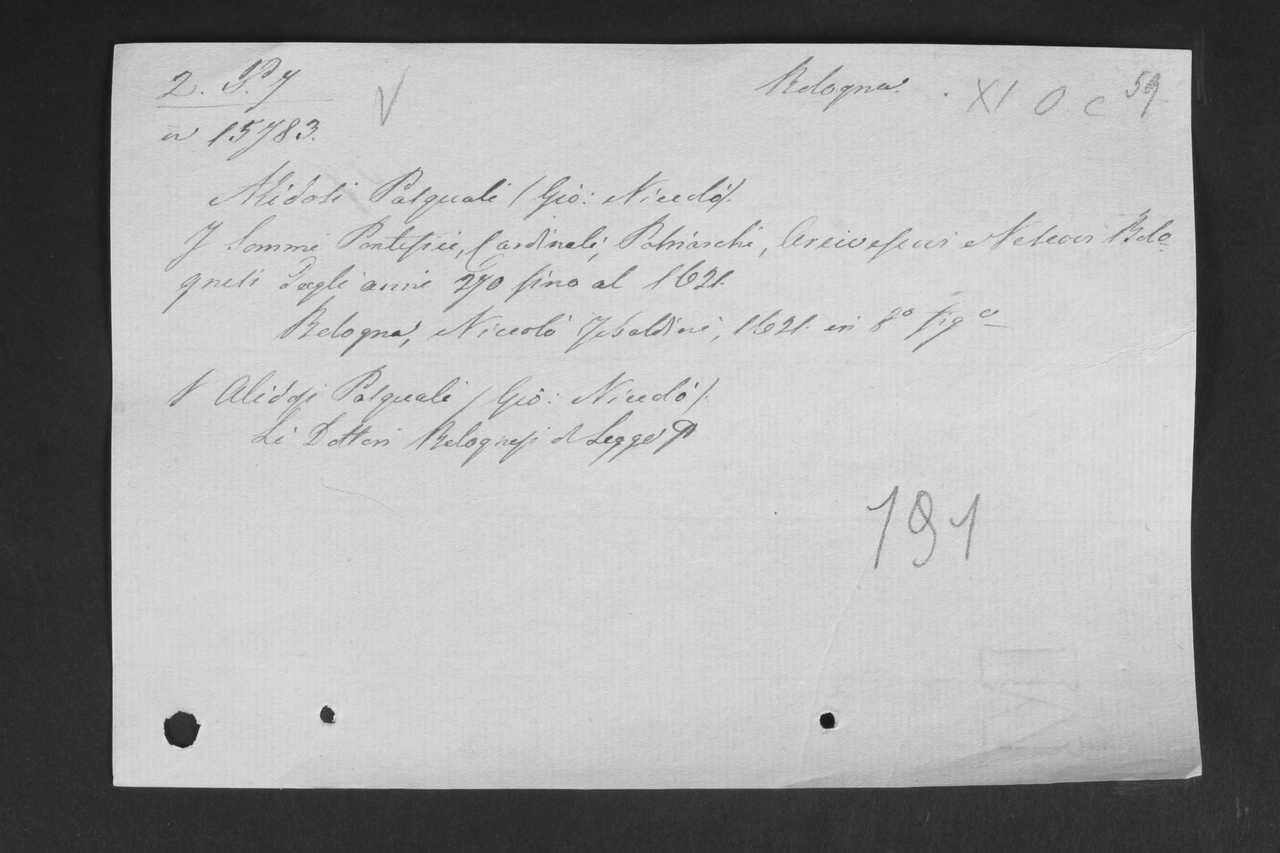 2. P. 7
Bologna.
XI O C 59
n 15783.
Alidosi Pasquali (Gio: Nicolò).
I Sommi Pontefici, Cardinali, Patriarchi, Arcivescovi e Vescovi Bolo-
gnesi dagli anni 270 fino al 1621.
Bologna, Niccolò Tebaldini, 1621. in 8º figº
Alidosi Pasquali (Gio: Nicolò).
Li Dottori Bolognesi di Legge
191